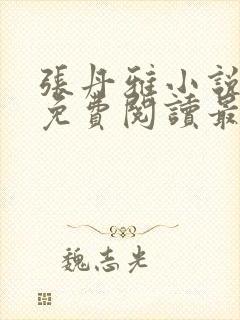 張丹雅小說
免費閱讀最
魏志光